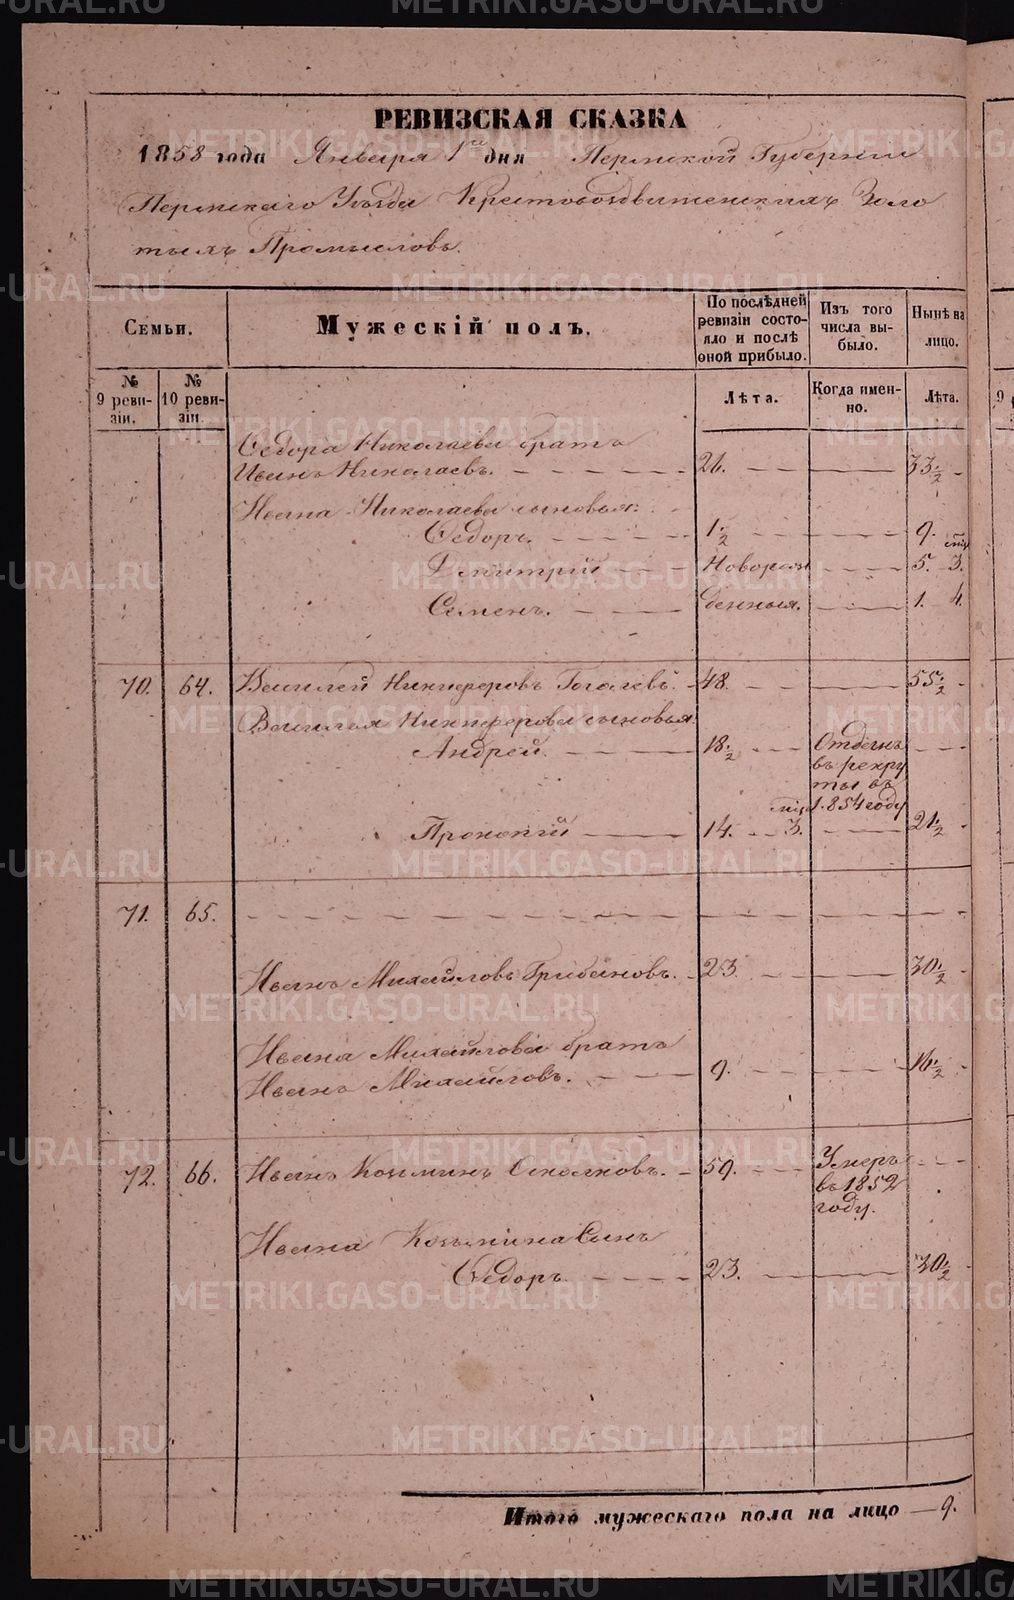 РЕВИЗСКАЯ СКАЗКА
1858 года Января 1го дня Пермской Губернии
Пермскаго Уѣзда Крестовоздвиженскихъ Золо
тыхъ Промысловъ.
Семьи.
Мужескій полъ.
По послѣдней ревизіи состояло и послѣ оной прибыло.
Изъ того числа выбыло.
Нынѣ на лицо.
№ 9 ревизіи.
№ 10 ревизіи.
Лѣта.
Когда именно.
Лѣта.
Ѳедора Николаева братъ
Иванъ Николаевъ. 26. 33 1/2
Ивана Николаева сыновья:
Ѳедоръ. 1 1/2 9.
Дмитрій Новорож 5. 3. мѣс
Семенъ. денныя. 1. 4.
70. 64. Василей Никифоровъ Гогалевъ. 48. 55 1/2
Василья Никифорова сыновья
Андрей. 18 1/2 Отданъ
въ рекру
ты въ
1854 году
Прокопій 14. 3. мѣс 21 1/2
71. 65.
Иванъ Михайловъ Грибановъ. 23. 30 1/2
Ивана Михайлова братъ
Иванъ Михайловъ. 9. 16 1/2
72. 66. Иванъ Козьминъ Соколковъ. 59. Умеръ
въ 1852
году.
Ивана Козьмина Сынъ
Ѳедоръ 23. 30 1/2
Итого мужескаго пола на лицо 9.
METRIKI.GASO-URAL.RU